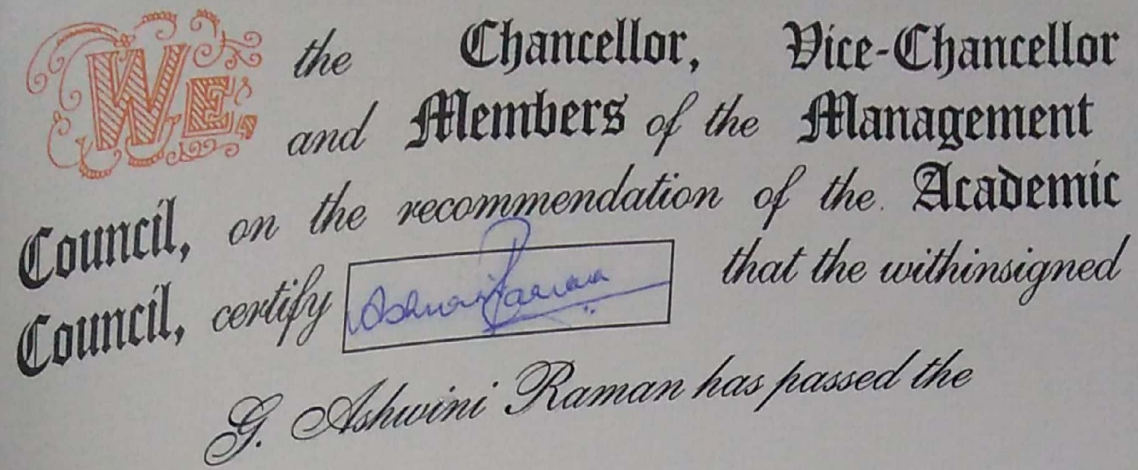 WE, the Chancellor, Vice-Chancellor
and Members of the Management
Council, on the recommendation of the Academic
Council, certify Ashwini Raman that the withinsigned
G. Ashwini Raman has passed the